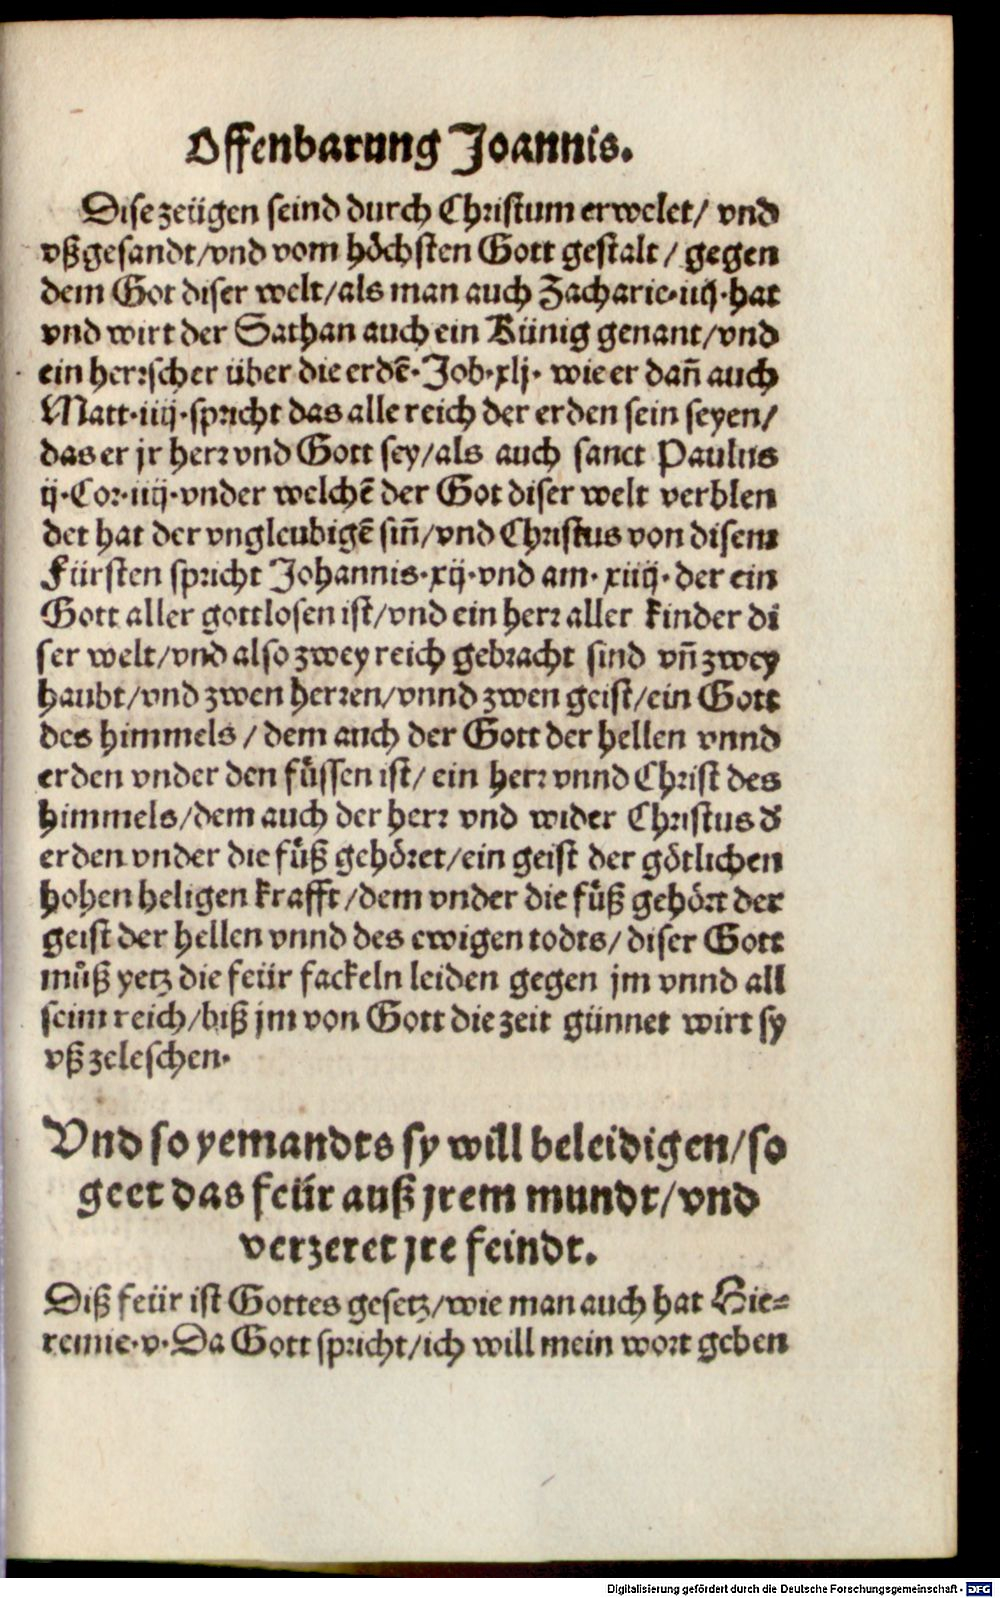 Offenbarung Joannis.
Dise zeügen seind durch Christum erwelet/ vnd
vßgesandt/vnd vom höchsten Gott gestalt / gegen
dem Got diser welt/als man auch Zacharie.iiij.hat
vnd wirt der Sathan auch ein Künig genant/vnd
ein herrscher über die erdē.Job.xlj. wie er dañ auch
Matt.iiij.spricht das alle reich der erden sein seyen/
das er jr herr vnd Gott sey/als auch sanct Paulus
ij.Cor.iiij.vnder welchē der Got diser welt verblen
det hat der vngleubigē siñ/vnd Christus von disem
Fürsten spricht Johannis.xij.vnd am.xiiij.der ein
Gott aller gottlosen ist/vnd ein herr aller kinder di
ser welt/vnd also zwey reich gebracht sind vñ zwey
haubt/vnd zwen herren/vnnd zwen geist/ein Gott
des himmels / dem auch der Gott der hellen vnnd
erden vnder den fůssen ist/ ein herr vnnd Christ des
himmels/dem auch der herr vnd wider Christus d̕
erden vnder die fůß gehöret/ein geist der götlichen
hohen heligen krafft/dem vnder die fůß gehört der
geist der hellen vnnd des ewigen todts/diser Gott
můß yetz die feür fackeln leiden gegen jm vnnd all
seim reich/biß jm von Gott die zeit günnet wirt sy
vß zeleschen.
Vnd so yemandts sy will beleidigen/so
geet das feür auß jrem mundt/vnd
verzeret jre feindt.
Diß feür ist Gottes gesetz/wie man auch hat Hie=
remie.v.Da Gott spricht/ich will mein wort geben
Digitalisierung gefördert durch die Deutsche Forschungsgemeinschaft - DFG